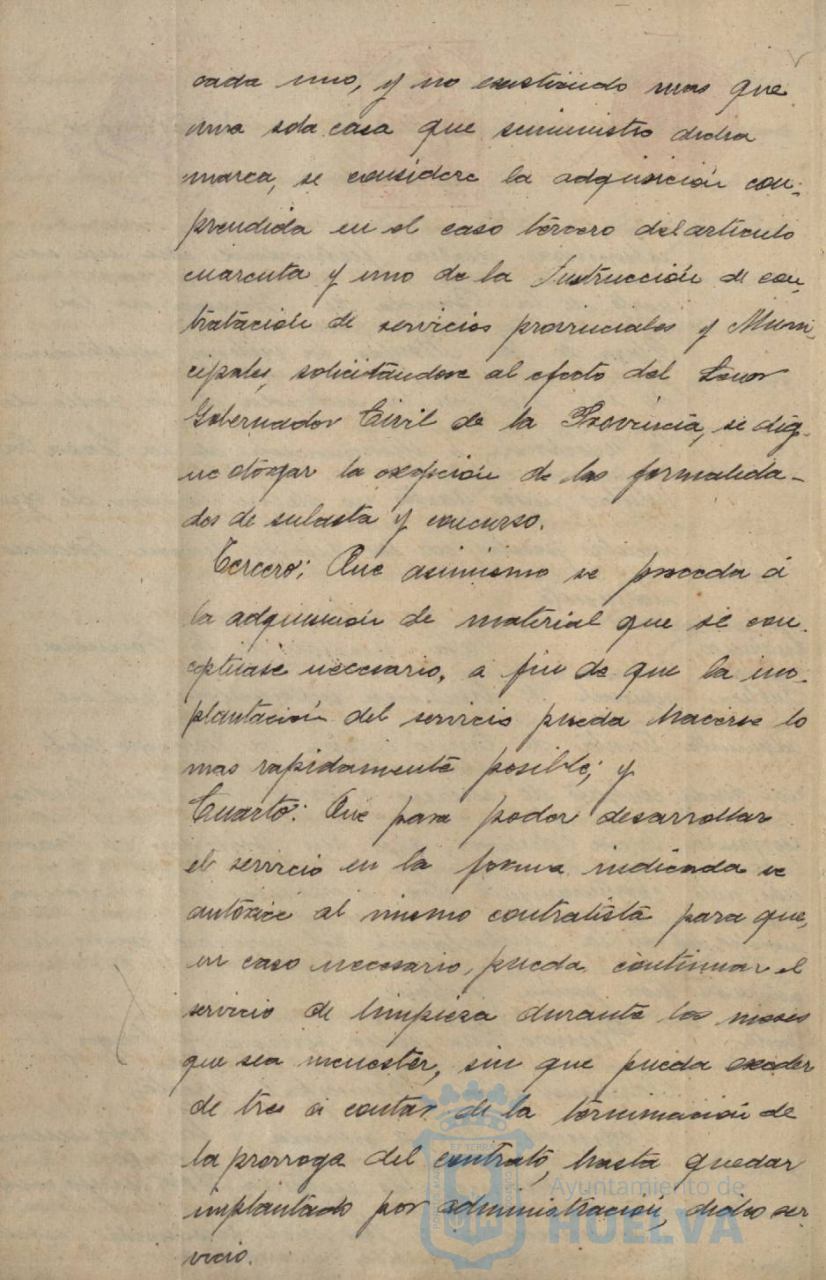 cada uno, y no existiendo mas que
una sola casa que suministro dicha
marca, se considere la adquisición com-
prendida en el caso tercero del artículo
cuarenta y uno de la Instrucción de con-
tratación de servicios provinciales y Muni-
cipales, solicitandose al efecto del Señor
Gobernador Civil de la Provincia, se dig-
ne otorgar la exepción de las formalida-
des de subasta y concurso.
Tercero: Que asimismo se proceda á
la adquisición de material que se con-
ceptuase necesario, a fin de que la im-
plantación del servicio pueda hacerse lo
mas rapidamente posible; y
Cuarto: Que para poder desarrollar
el servicio en la forma indicada se
autorice al mismo contratista para que,
en caso necesario, pueda continuar el
servicio de limpieza durante los meses
que sea menester, sin que pueda exceder
de tres á contar de la terminación de
la prorroga del contrato, hasta quedar
implantado por administración, dicho ser-
vicio.
Ayuntamiento de
HUELVA